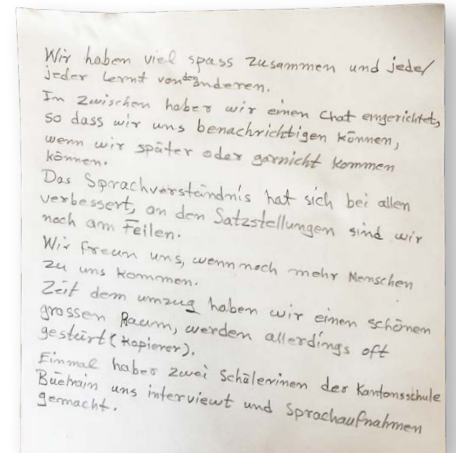 Wir haben viel spass zusammen und jede/
jeder lernt von den anderen.
In zwischen haben wir einen Chat eingerichtet,
so dass wir uns benachrichtigen können,
wenn wir später oder garnicht kommen
können.
Das Sprachverständnis hat sich bei allen
verbessert, an den Satzstellungen sind wir
noch am Feilen.
Wir freun uns, wenn noch mehr Menschen
zu uns kommen.
Zeit dem umzug haben wir einen schönen
grossen Raum, werden allerdings oft
gestürt (Kopierer).
Einmal haben zwei Schülerinen der Kantonsschule
Büelrain uns interviewt und Sprachaufnahmen
gemacht.